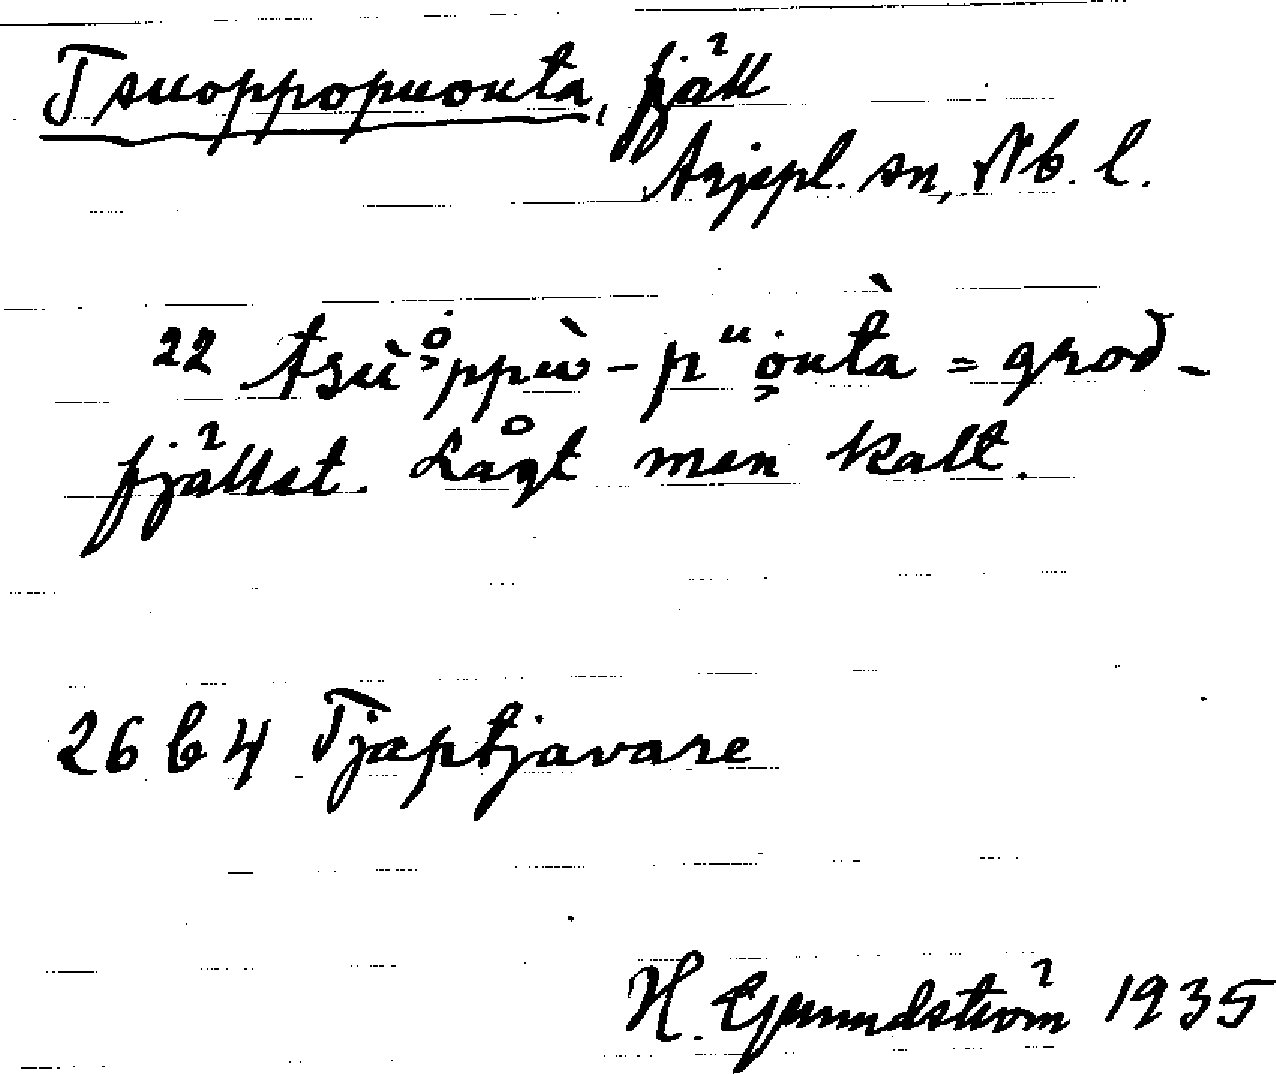 Tsuoppopuouta, fjäll
Arjepl. sn, Nb. l.
22 tsù̀o̜ppù̀-pᵘo̜utà = grod-
fjället. Lågt men kalt.
26 b 4 Tjaptjavare
H. Grundström 1935